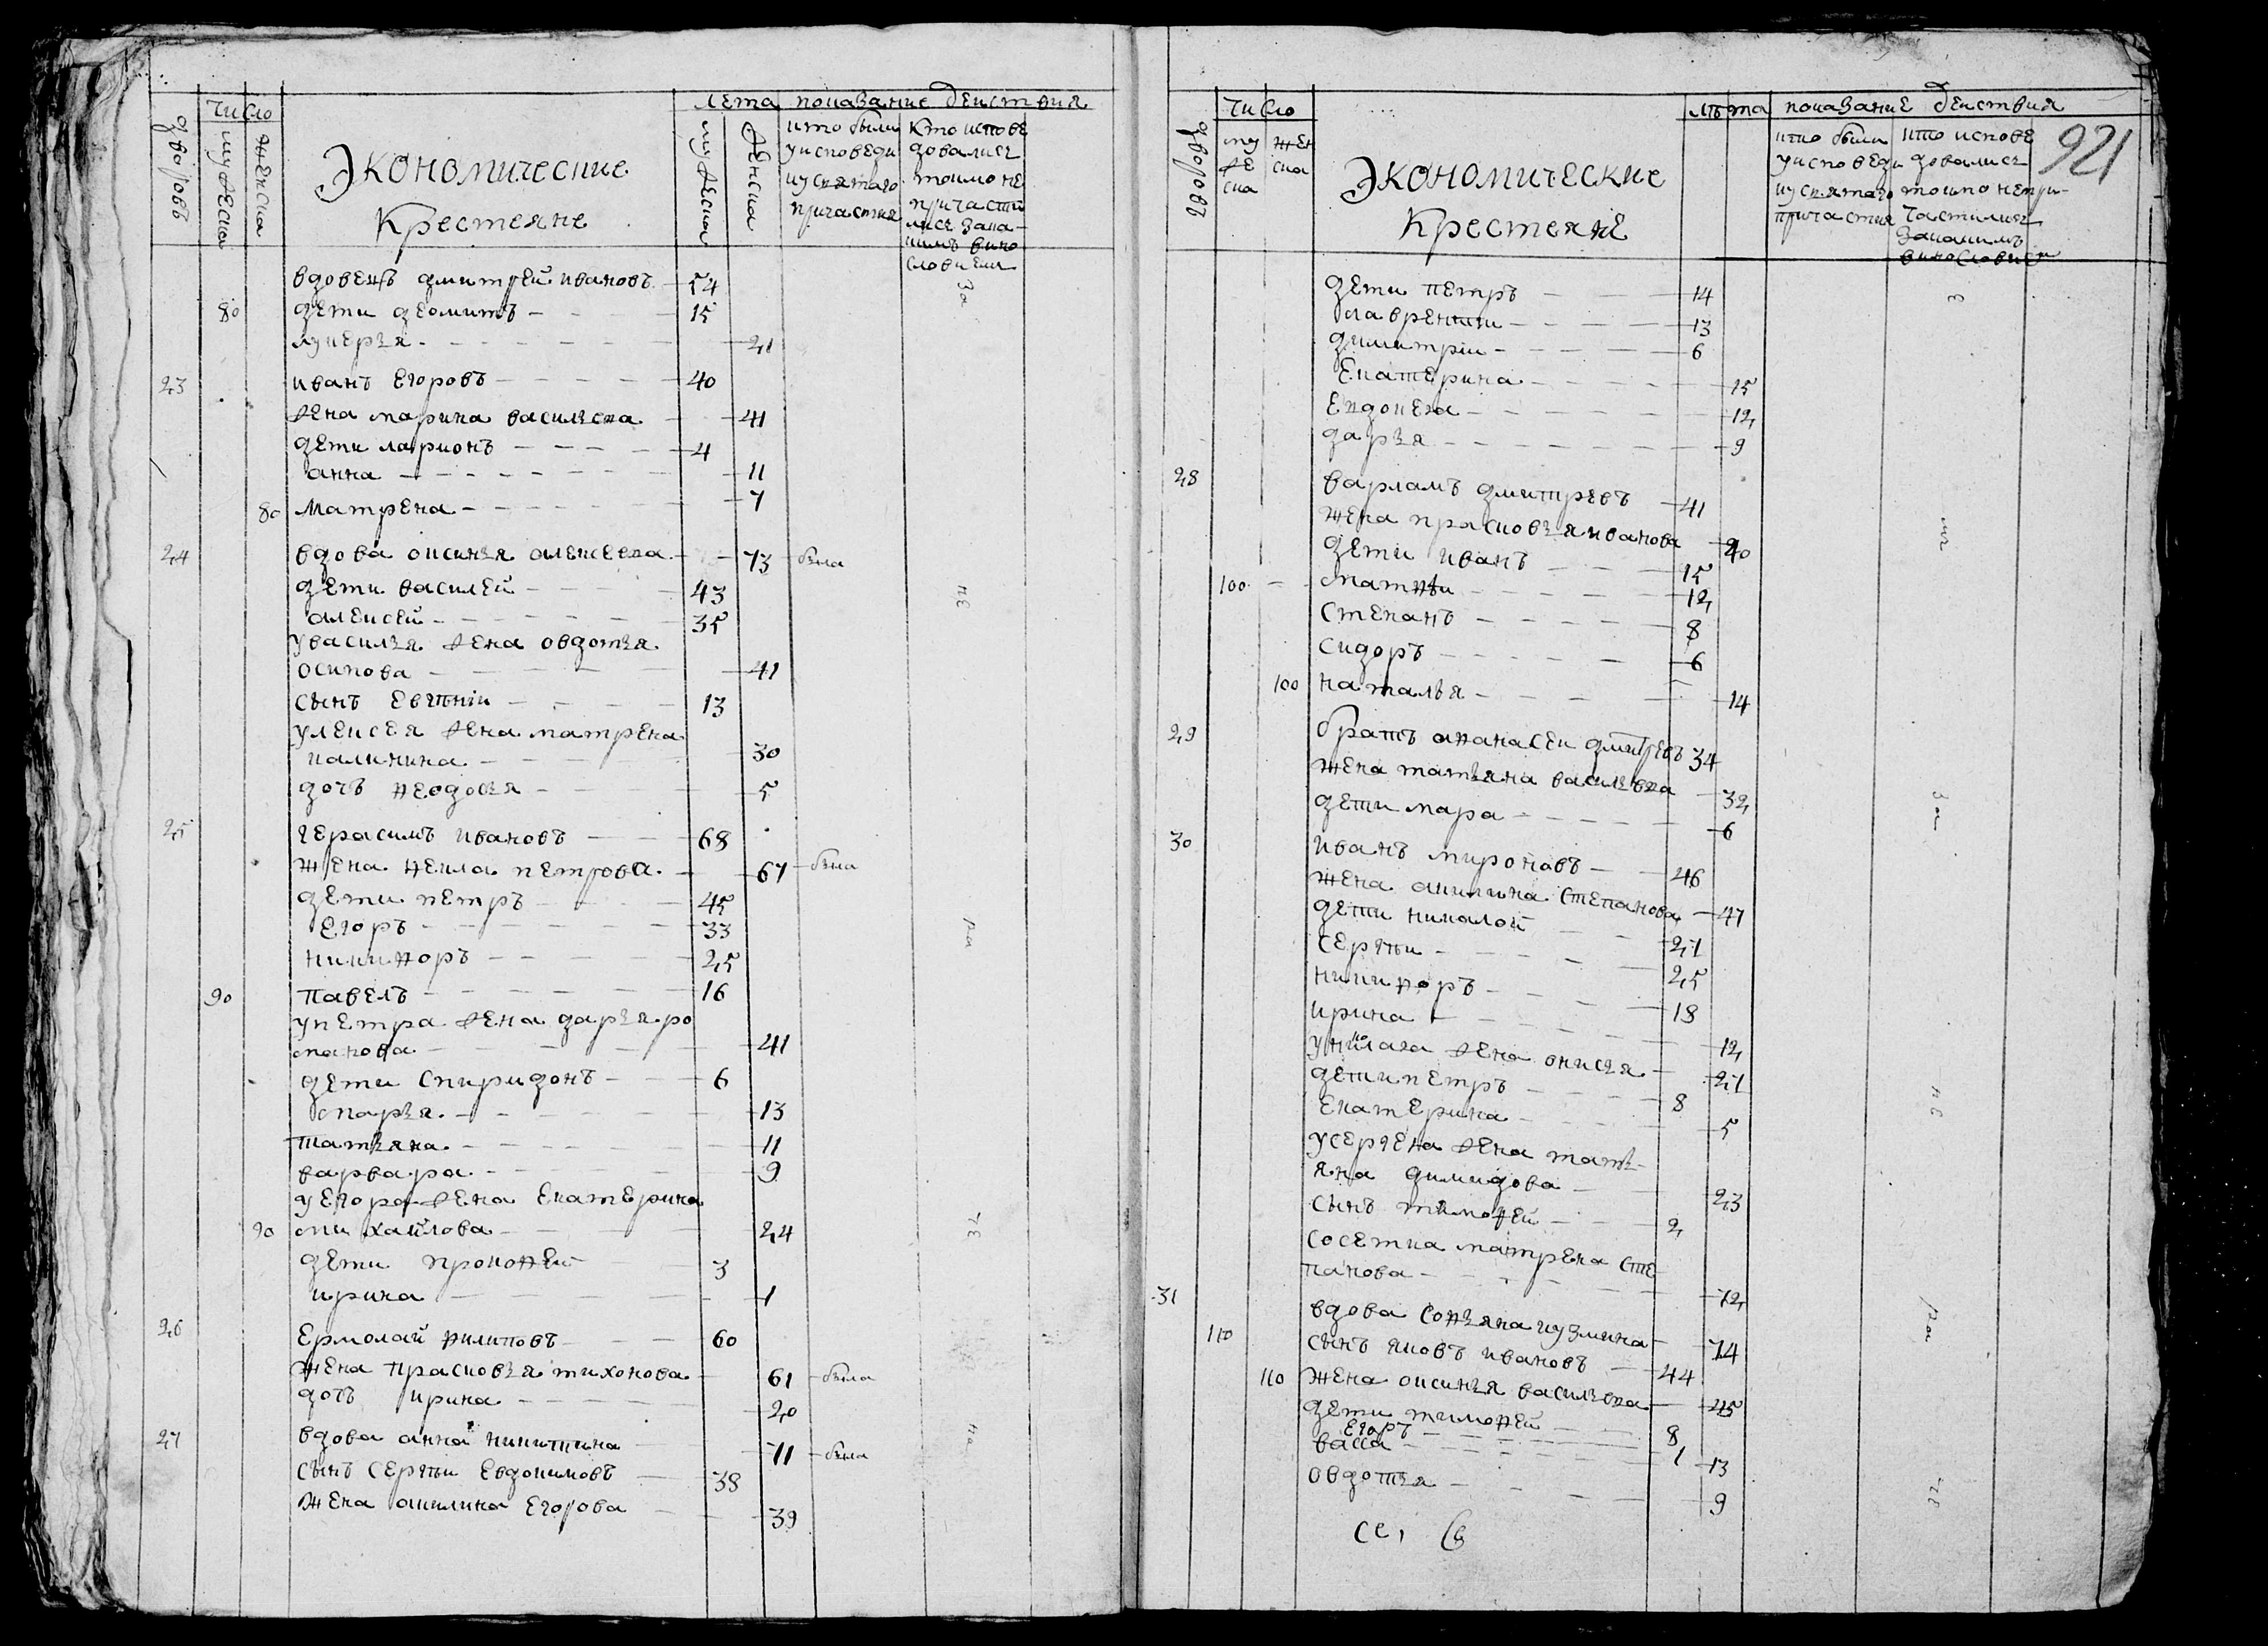 число
дворовъ
мужеска
женска
Экономические
Крестеяне
лета показание деиствия
мужеска
женска
кто были
у исповеди
и у святаго
причастия
кто испове
довались
токмо не
причасти
лись за ка
кимъ вино
словием
вдовецъ дмитрей ивановъ 54
80 дети деомитъ 15
лукерья 21
23 иванъ егоровъ 40
жена марина васильева 41
дети ларионъ 4
анна 11
80 матрена 7
24 вдова оксинья алексеева 73 была
дети василей 43
алексей 35
у василья жена овдотья
осипова 41
сынъ евгѣнiи 13
у лексея жена матрена
калинина 30
дочь ѳеодосья 5
25 герасимъ ивановъ 68
жена ѳекла петрова 67 была
дети петръ 45
егоръ 33
никиѳоръ 25
90 павелъ 16
у петра жена дарья ро
манова 41
дети спиридонъ 6
марья 13
татьяна 11
варвара 9
у егора жена екатерина
90 михайлова 24
дети прокоѳей 3
ирина 1
26 ермолай ѳилиповъ 60
жена прасковья тихонова 61 была
дочь ирина 20
27 вдова анна никитина 71 была
сынъ сергѣи евдокимовъ 38
жена акилина егорова 39
за
не
ра
че
на
921
число
дворовъ
му
же
ска
жен
ска
Экономические
Крестеяне
лѣта показание деиствия
кто были
у исповеди
и у святаго
причастия
кто испове
довались
токмо непри-
частились
за какимъ
винословием
дети петръ 14
лаврентии 13
димитрiи 6
екатерина 15
евдокея 12
дарья 9
28 варламъ дмитревъ 41
жена прасковья иванова 40
дети иванъ 15
100 матѳѣи 12
степанъ 8
сидоръ 6
100 наталья 14
29 братъ аѳанасеи дмитревъ 34
жена татьяна васильева 32
дети мара 6
30 иванъ мироновъ 46
жена акилина степанова 47
дети николай 27
сергѣи 25
никиѳоръ 18
ирина 12
у николая жена онисья 27
дети петръ 8
екатерина 5
у сергеиа жена тать-
яна димидова 23
сынъ тимоѳей 2
сосетка матрена сте
панова 72
31 вдова соѳьяна кузмина 74
110 сынъ яковъ ивановъ 44
110 жена оксинья васильева 45
дети тимоѳей 8
егоръ 1
васса 13
овдотья 9
за
не
ра